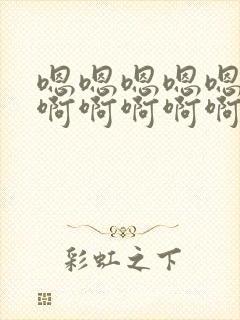 嗯嗯嗯嗯嗯
啊啊啊啊啊
彩虹之下